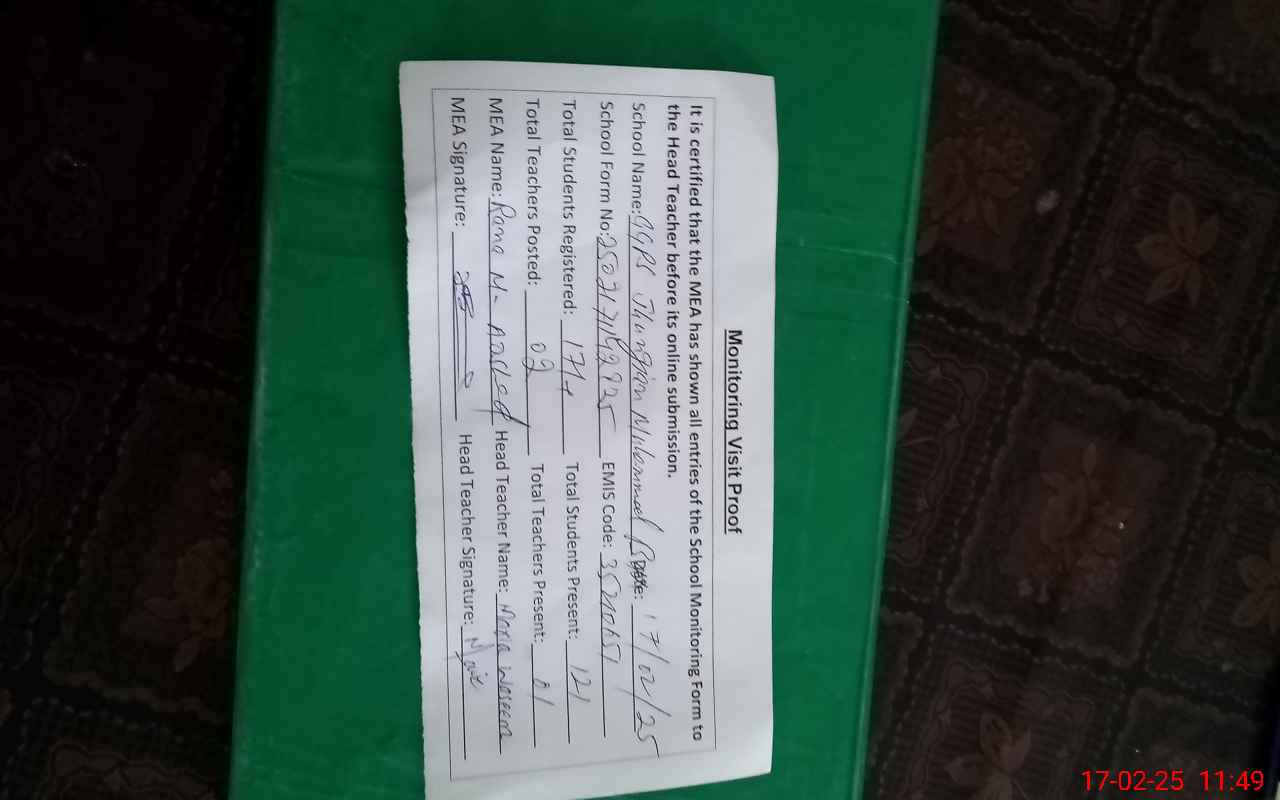 Monitoring Visit Proof
It is certified that the MEA has shown all entries of the School Monitoring Form to
the Head Teacher before its online submission.
School Name: GGPS Jhuggian Muhammad Date: 17/02/25
School Form No: EMIS Code: 35210651
Total Students Registered: 174 Total Students Present: 121
Total Teachers Posted: 02 Total Teachers Present: 01
MEA Name: Rana M. Head Teacher Name: Maria Waseem
MEA Signature: Head Teacher Signature:
17-02-25 11:49